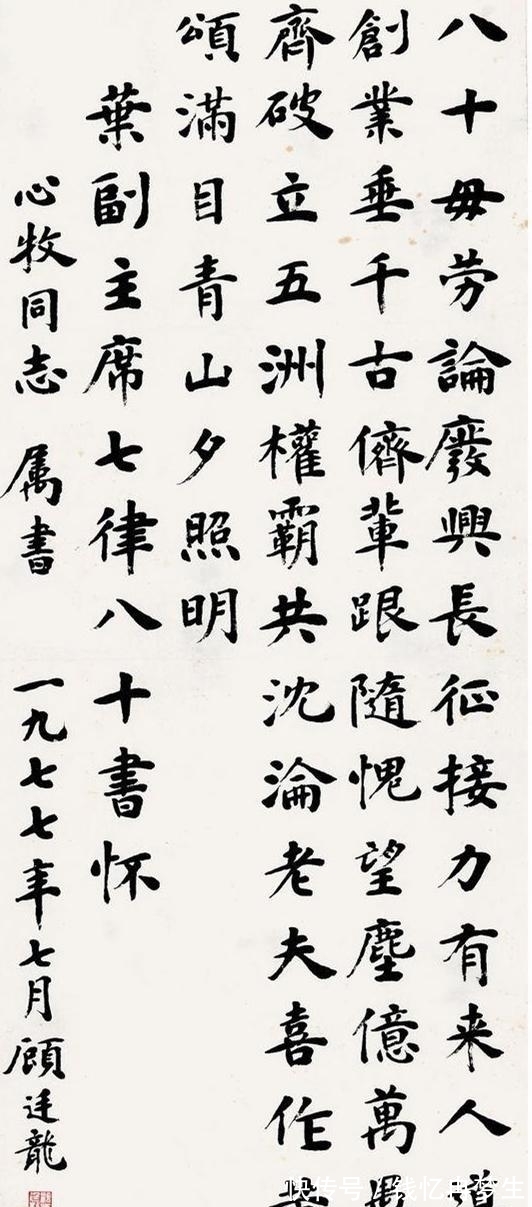 八十毋劳論廢興長征接力有来人
創業垂千古儕輩跟隨愧望塵億萬
齊破立五洲權霸共沈淪老夫喜作
頌滿目青山夕照明
葉副主席七律八十書怀
心牧同志 属書 一九七七年七月顧廷龍
快传号 /